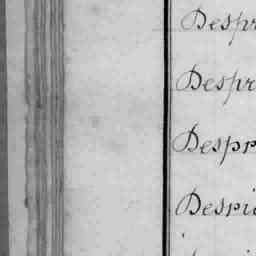 Despr
Despr
Despr
Despie